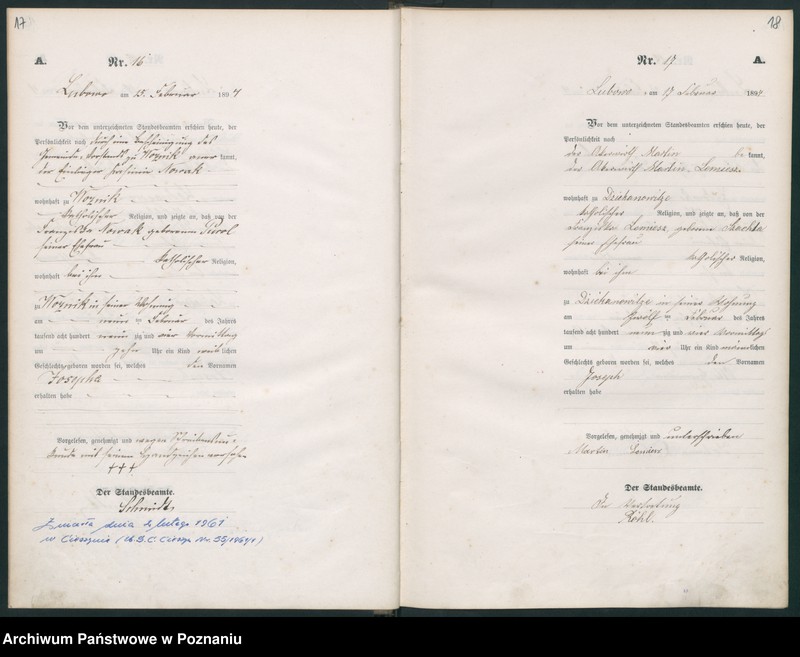 17
A.
Nr. 16
Lubowo am 13. Februar 1894
Vor dem unterzeichneten Standesbeamten erschien heute, der
Persönlichkeit nach durch eine Bescheinigung des
Gemeinde-Vorstands zu Woznik anerkannt,
der Einlieger Nowak
wohnhaft zu Woznik
katholischer Religion, und zeigte an, daß von der
Franziska Nowak geborenen
seiner Ehefrau
katholischer Religion,
wohnhaft bei ihm
zu Woznik in seiner Wohnung
am neun ten Februar des Jahres
tausend acht hundert neun zig und vier Vormittag
um zehn Uhr ein Kind weiblichen
Geschlechts geboren worden sei, welches den Vornamen
Josepha
erhalten habe
Vorgelesen, genehmigt und wegen Schreibensun-
kunde mit seinem Handzeichen versehen
+++
Der Standesbeamte.
Schmidt
Zmarła dnia lutego 1961
w Cieszynie (U.S.C. Nr. 55/1961)
18
Nr. 17
A.
Lubowo am 17 Februar 1894
Vor dem unterzeichneten Standesbeamten erschien heute, der
Persönlichkeit nach
der Martin bekannt,
der Martin
wohnhaft zu Dziekanowitze
katholischer Religion, und zeigte an, daß von der
geborene
seiner Ehefrau
katholischer Religion,
wohnhaft bei ihm
zu Dziekanowitze in seiner Wohnung
am zwölf ten Februar des Jahres
tausend acht hundert neun zig und vier Vormittag
um vier Uhr ein Kind männlichen
Geschlechts geboren worden sei, welches den Vornamen
Joseph
erhalten habe
Vorgelesen, genehmigt und unterschrieben
Martin
Der Standesbeamte.
In Vertretung
Röhl.
Archiwum Państwowe w Poznaniu